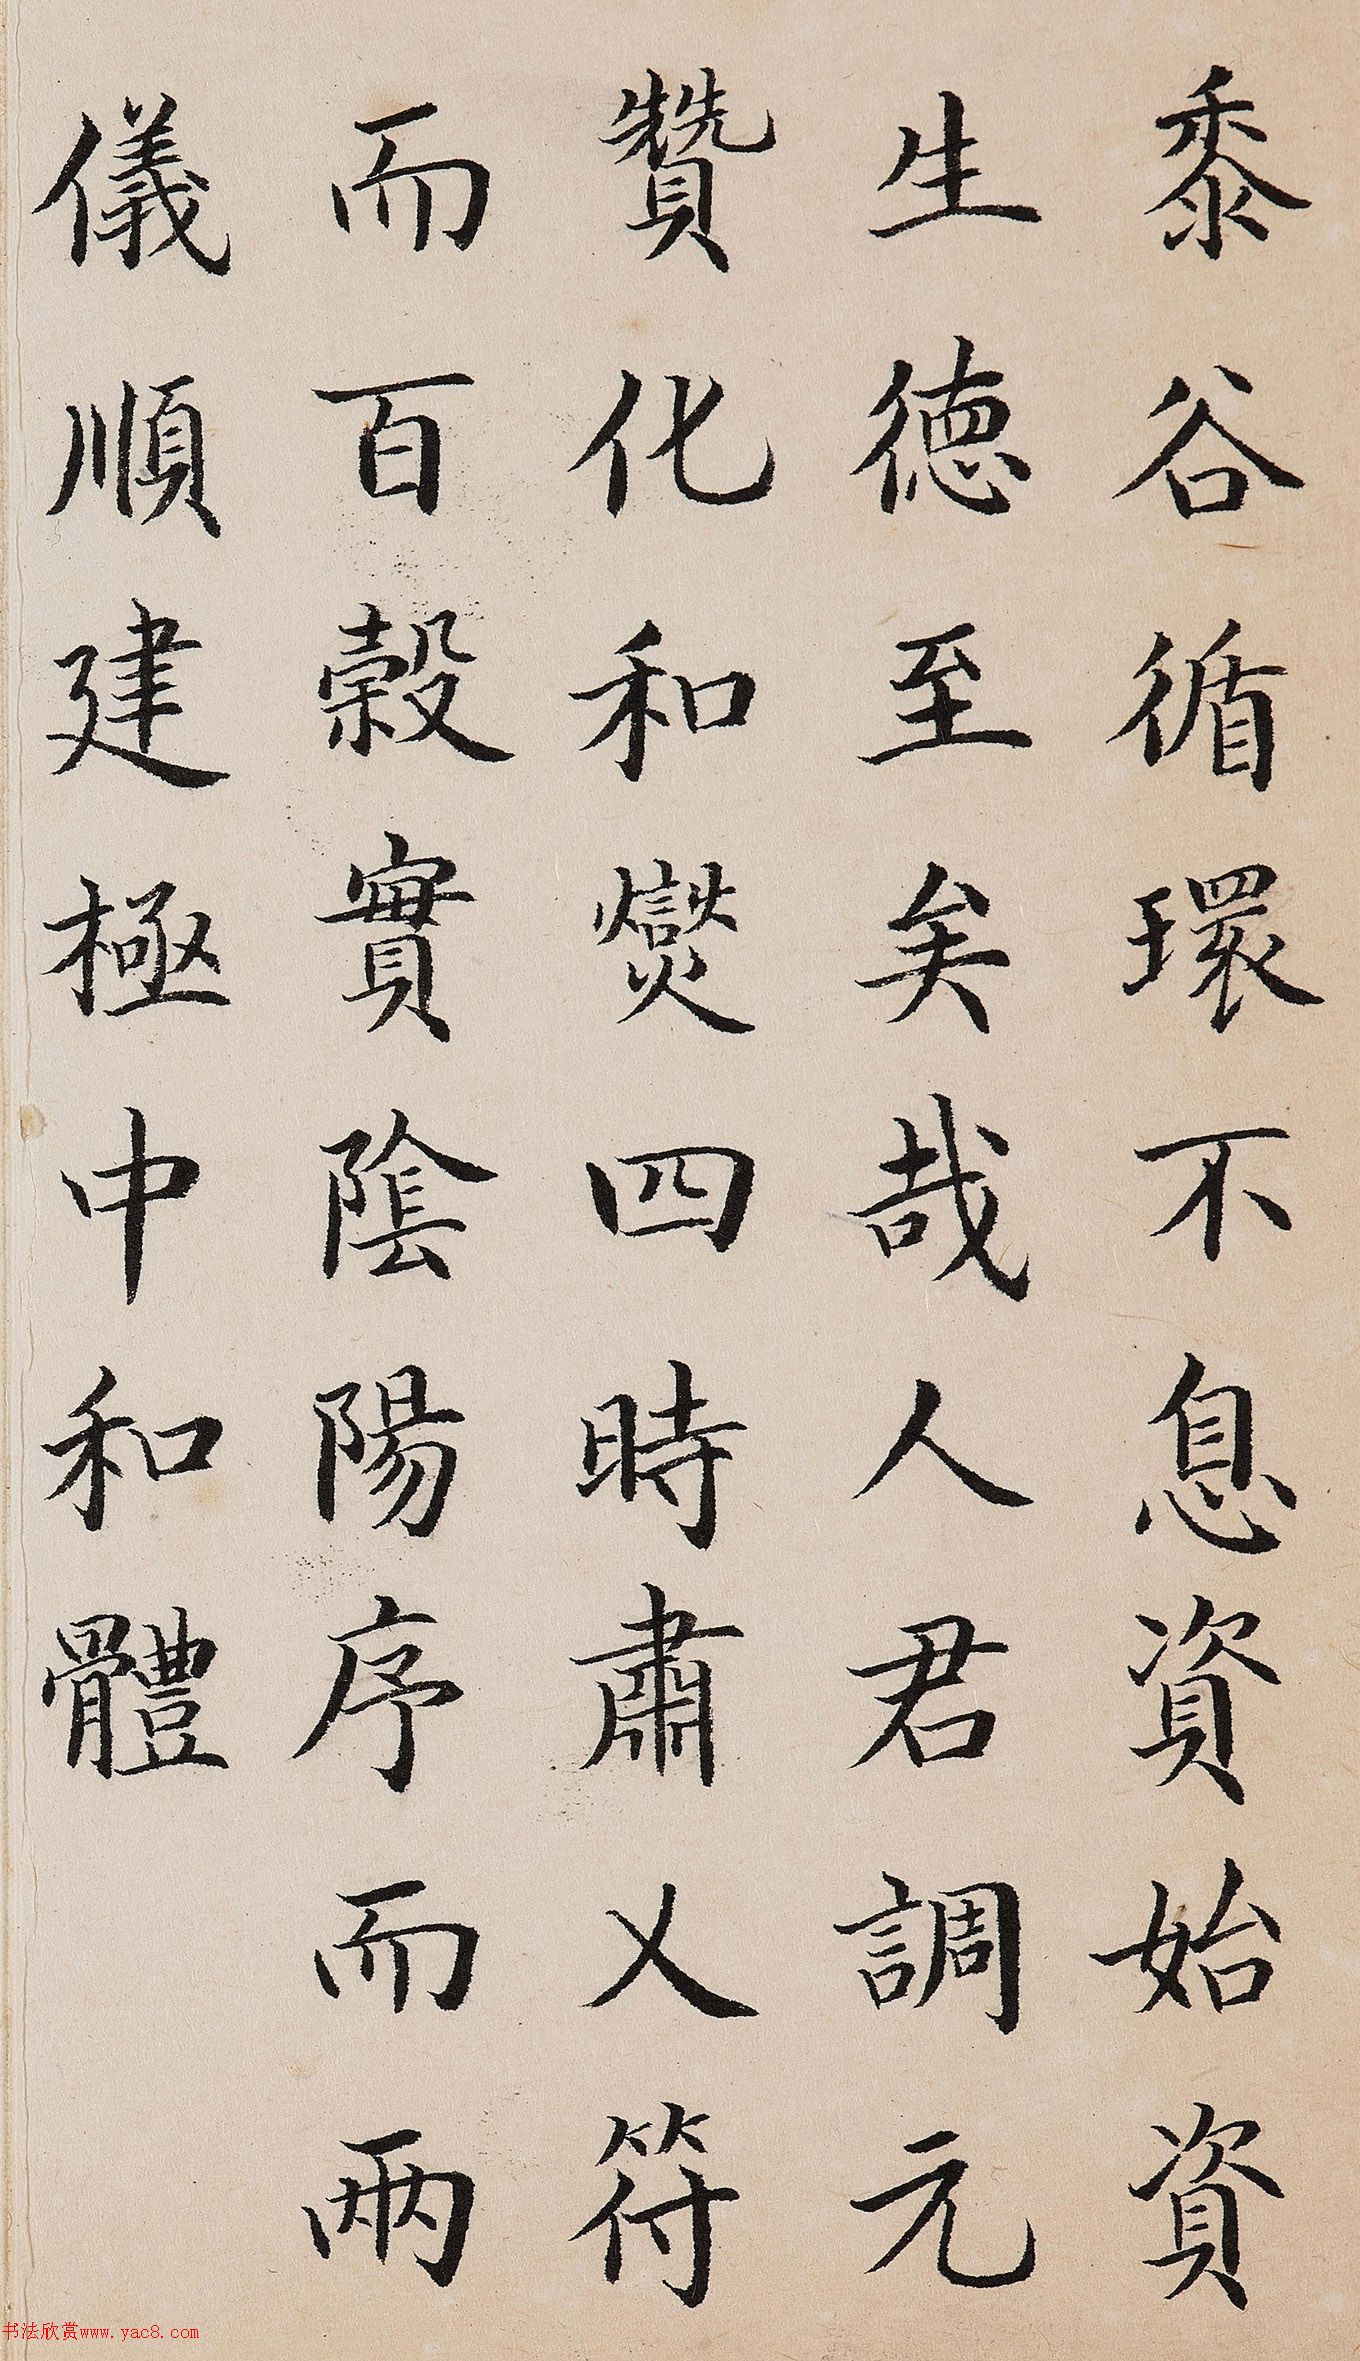 黍谷循環不息資始資
生德至矣哉人君調元
贊化和燮四時肅乂符
而百穀實陰陽序而兩
儀順建極中和體
书法欣赏www.yac8.com